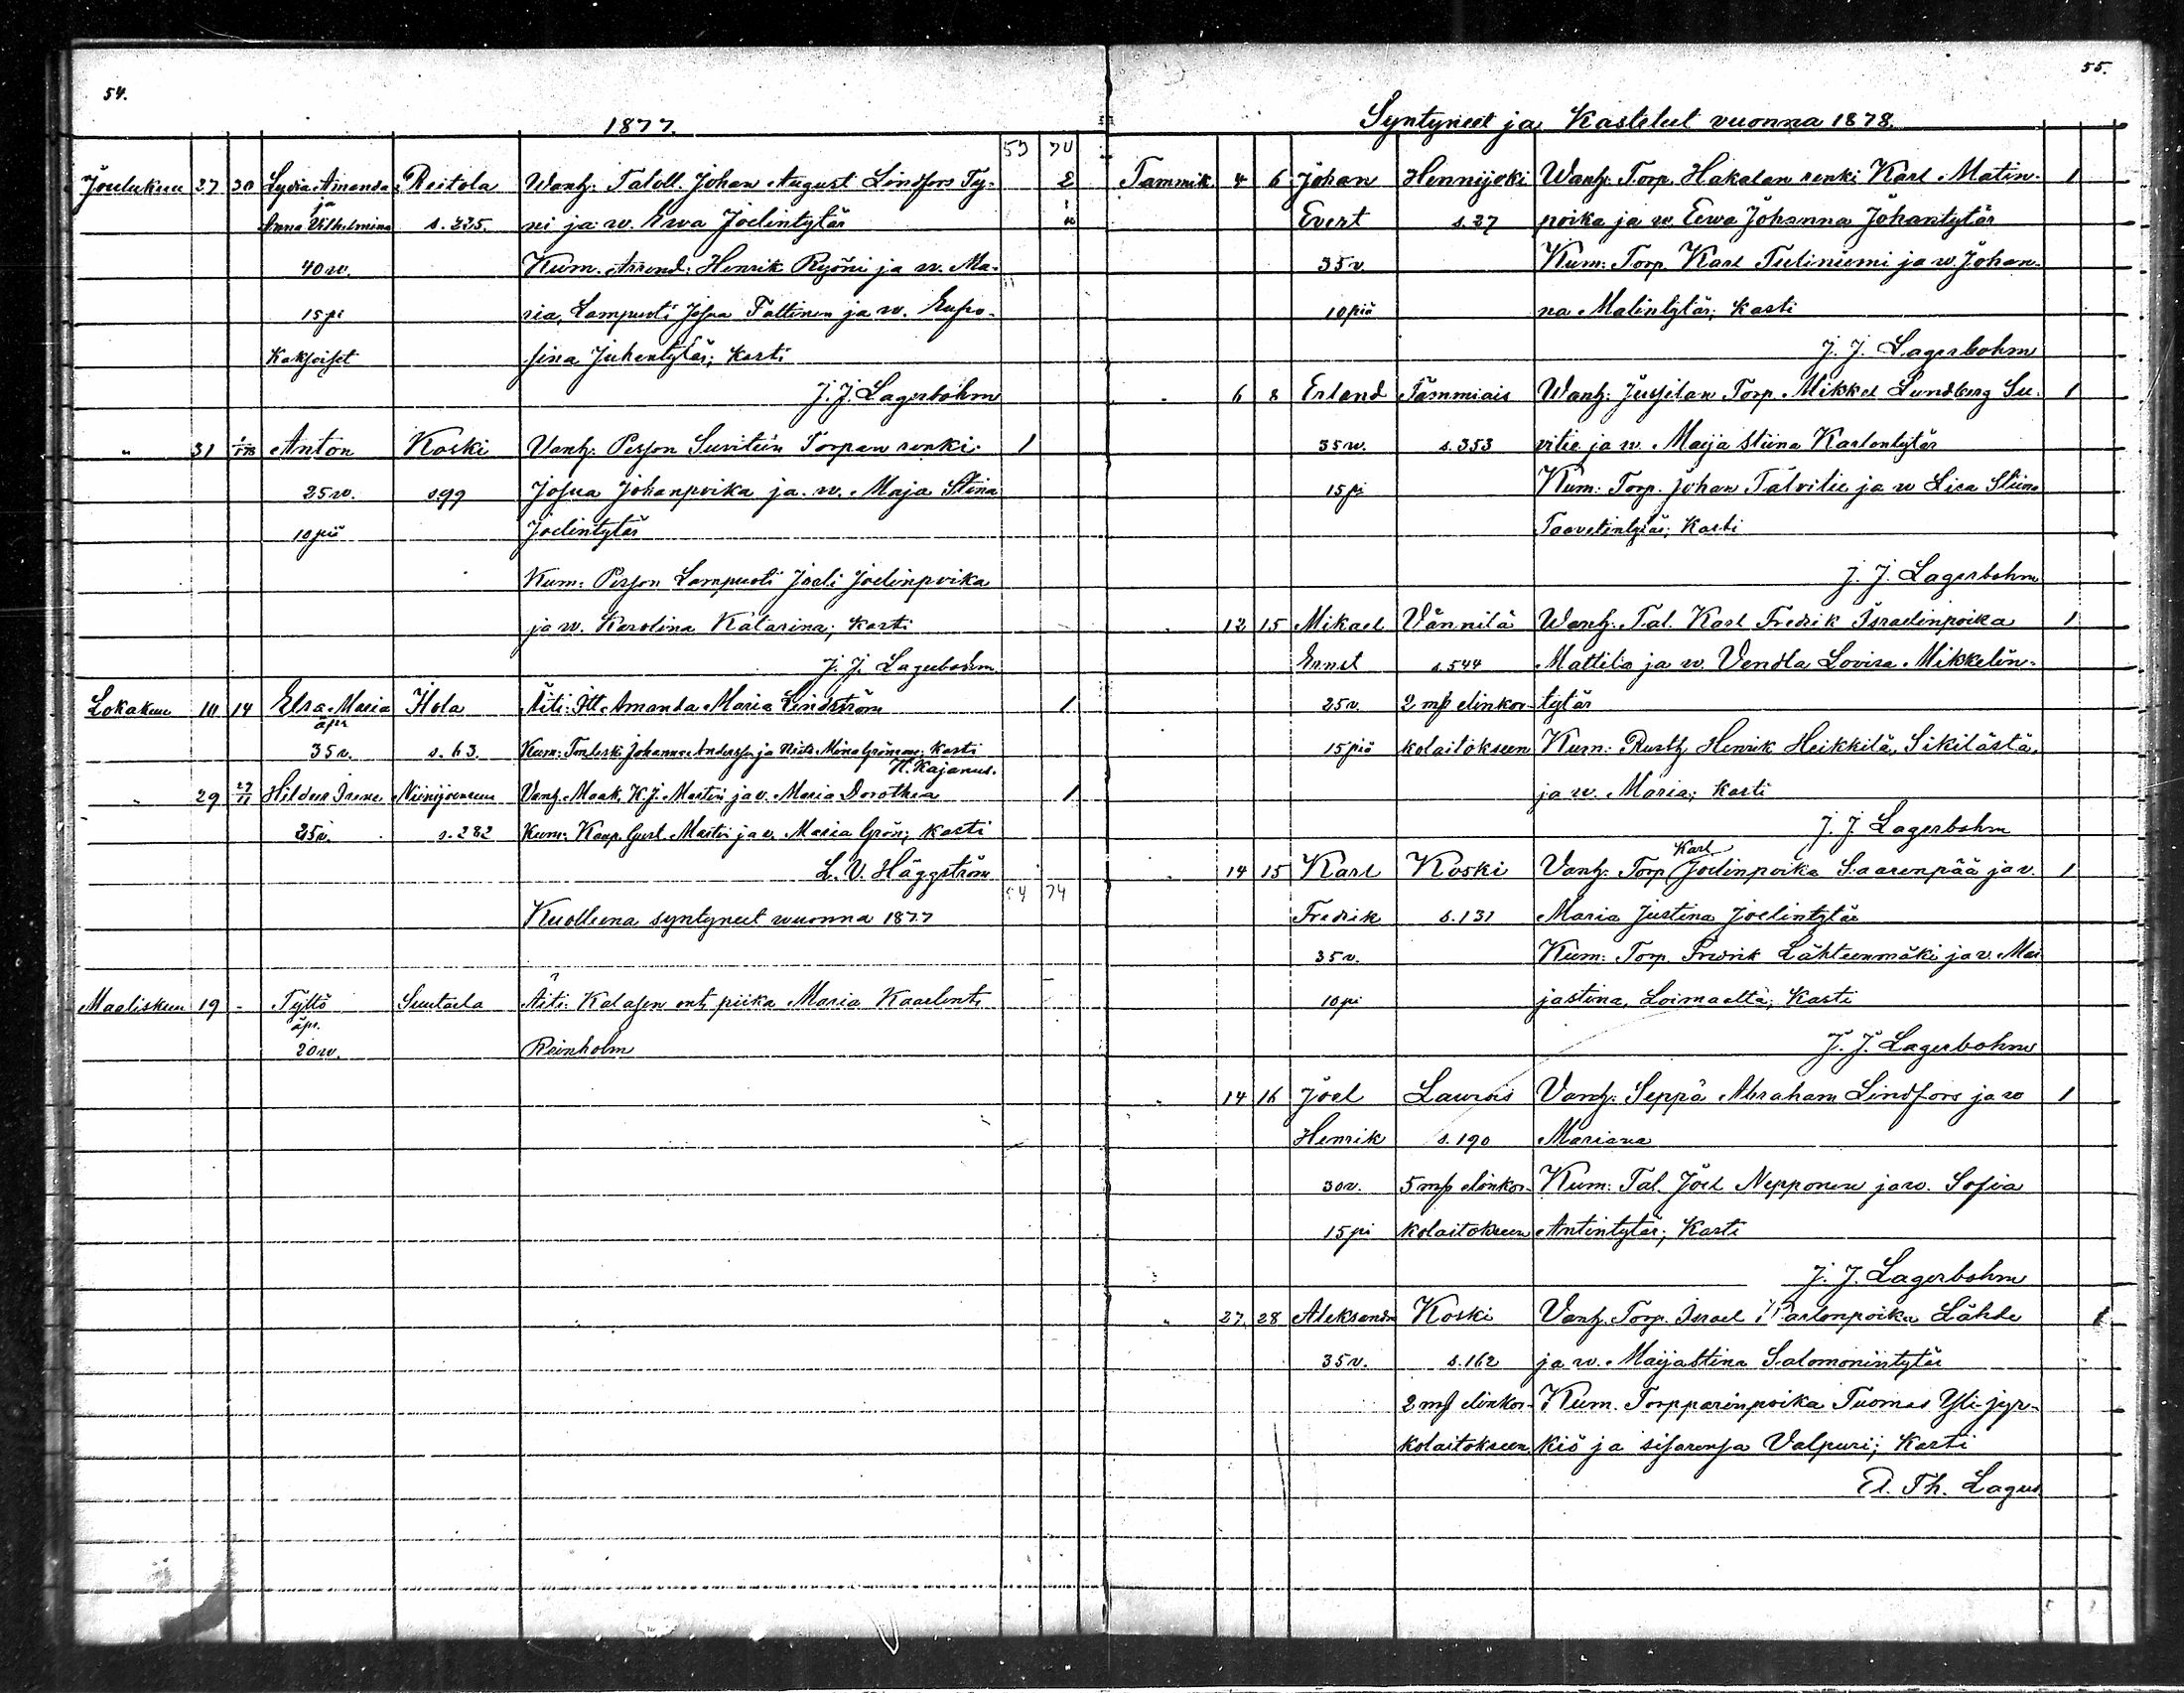 54.
1877.
53 70
Joulukuu 27 30 Lydia Amanda Reitola Wanh: Taloll. Johan August Lindfors Ty- 2
ja
Anna Vilhelmina s. 335. ni ja w. Ewa Joelintytär
40 w. Kum. Arrend: Henrik Ryöni ja w. Ma-
15 pi ria, Lampuoti Josua Tattinen ja w. Eufro-
Kaksoiset sina Juhontytär; Kasti
J. J. Lagerbohm
" 31 1/1 78 Anton Koski Vanh: Persson Suvitein Torpan renki 1
25 w. s 99 Josua Johanpoika ja w. Maja Stina
10 pii Joelintytär
Kum: Persson Lampuoti Joeli Joelinpoika
ja w. Karolina Katarina; Kasti
J. J. Lagerbohm
Lokakuu 10 14 Elsa Maria Ilola Äiti: Itt. Amanda Maria Lindström 1
äpr.
35 v. s. 63. Kum: Johanna Andersson ja Mina Grönman; Kasti
H. Kajanus.
" 29 29/11 Hildur Irene Niinijoensuu Vanh. Maak. K. J. Martin ja v. Maria Dorothea 1
25 v. s. 282 Kum: Kaup. Gust. Martin ja v. Maria Grön; Kasti
L. V. Häggström
54 74
Kuolleena syntyneet vuonna 1877
Maaliskuu 19 - Tyttö Suutarla Äiti: Kalasen ent. piika Maria Kaarlent:
äpr.
20 w. Reinholm
55.
Syntyneet ja Kastetut vuonna 1878.
Tammik. 4 6 Johan Hennijoki Wanh: Torp. Hakalan renki Karl Matin- 1
Evert s. 37 poika ja w. Eewa Johanna Johantytär
35 v. Kum: Torp. Karl Tuliniemi ja w. Johan-
10 pii na Matintytär; Kasti
J. J. Lagerbohm
" 6 8 Erland Tammiais Wanh: Jussilan Torp. Mikkel Lundberg Su- 1
35 w. s. 353 vitie ja w. Maija Stiina Karlontytär
15 pi Kum: Torp. Johan Talvitie ja w Lisa Stiina
Taavetintytär; Kasti
J. J. Lagerbohm
" 12 15 Mikael Vännilä Wanh: Tal. Karl Fredrik Israelinpoika 1
Ernst s. 544 Mattila ja w. Vendla Lovisa Mikkelin-
25 v. 2 mp elinkor- tytär
15 pii kolaitokseen Kum: Rusth. Henrik Heikkilä, Sikilästä,
ja w. Maria; Kasti
J. J. Lagerbohm
Karl
" 14 15 Karl Koski Vanh: Torp. Joelinpoika Saarenpää ja v. 1
Fredrik s. 131 Maria Justina Joelintytär
35 v. Kum: Torp. Fredrik Lähteenmäki ja v. Mai
10 pi jastina, Loimaalta; Kasti
J. J. Lagerbohm
" 14 16 Joel Laurois Vanh: Seppä Abraham Lindfors ja w 1
Henrik s. 190 Mariana
30 v. 5 mp elinkor- Kum: Tal. Joel Nepponen ja w. Sofia
15 pi kolaitokseen Antintytär; Kasti
J. J. Lagerbohm
" 27 28 Aleksandra Koski Vanh. Torp. Israel Karlonpoika Lähde 1
35 v. s. 162 ja w. Maijastina Salomonintytär
2 mp elinkor- Kum. Torpparinpoika Tuomas Yli-jyr-
kolaitokseen kiö ja sisarensa Valpuri; Kasti
A. Th. Lagus